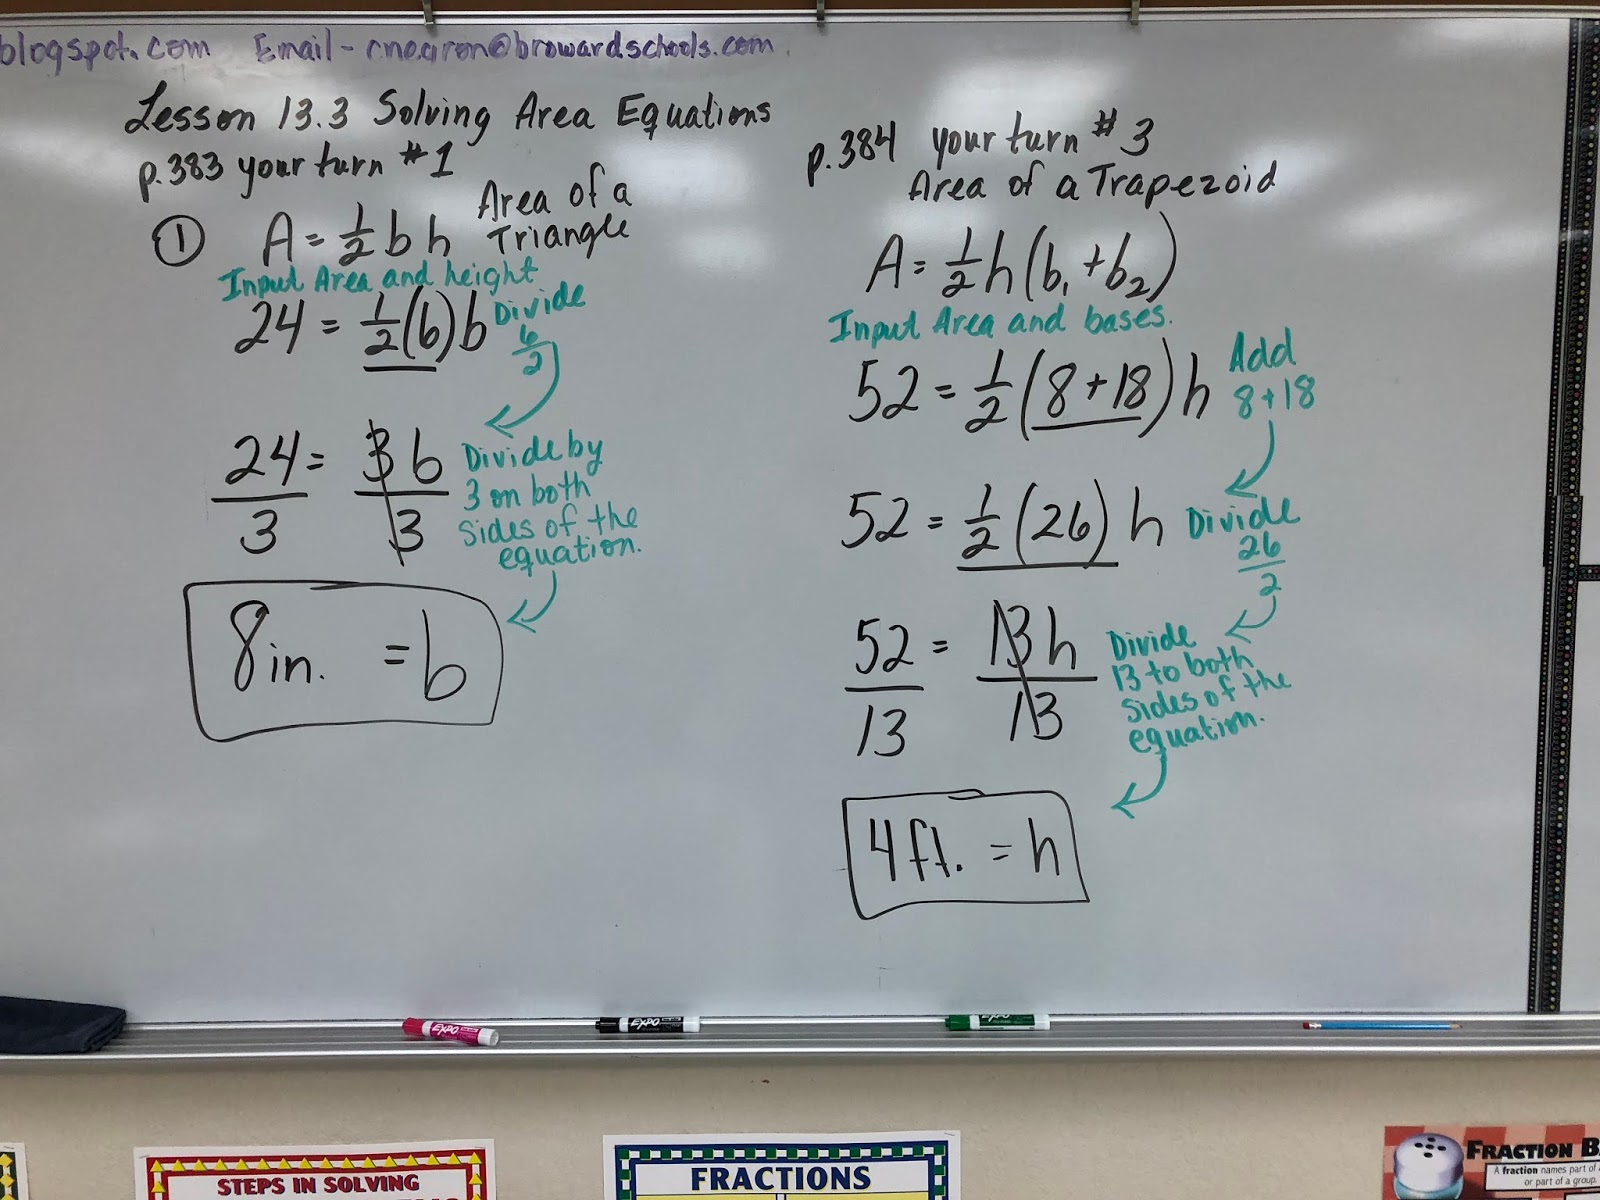 blogspot.com Email - rnegron@browardschools.com
Lesson 13.3 Solving Area Equations
p.383 your turn #1
① A = 1/2 b h Area of a Triangle
Input Area and height
24 = 1/2 (6) b Divide 6/2
24/3 = 3b/3 Divide by
3 on both
sides of the
equation.
8 in. = b
p.384 your turn #3
Area of a Trapezoid
A = 1/2 h (b₁ + b₂)
Input Area and bases.
52 = 1/2 (8 + 18) h Add 8 + 18
52 = 1/2 (26) h Divide 26/2
52/13 = 13h/13 Divide
13 to both
sides of the
equation.
4 ft. = h
EXPO
EXPO
STEPS IN SOLVING
FRACTIONS
FRACTION B
A fraction names part of
or part of a group.